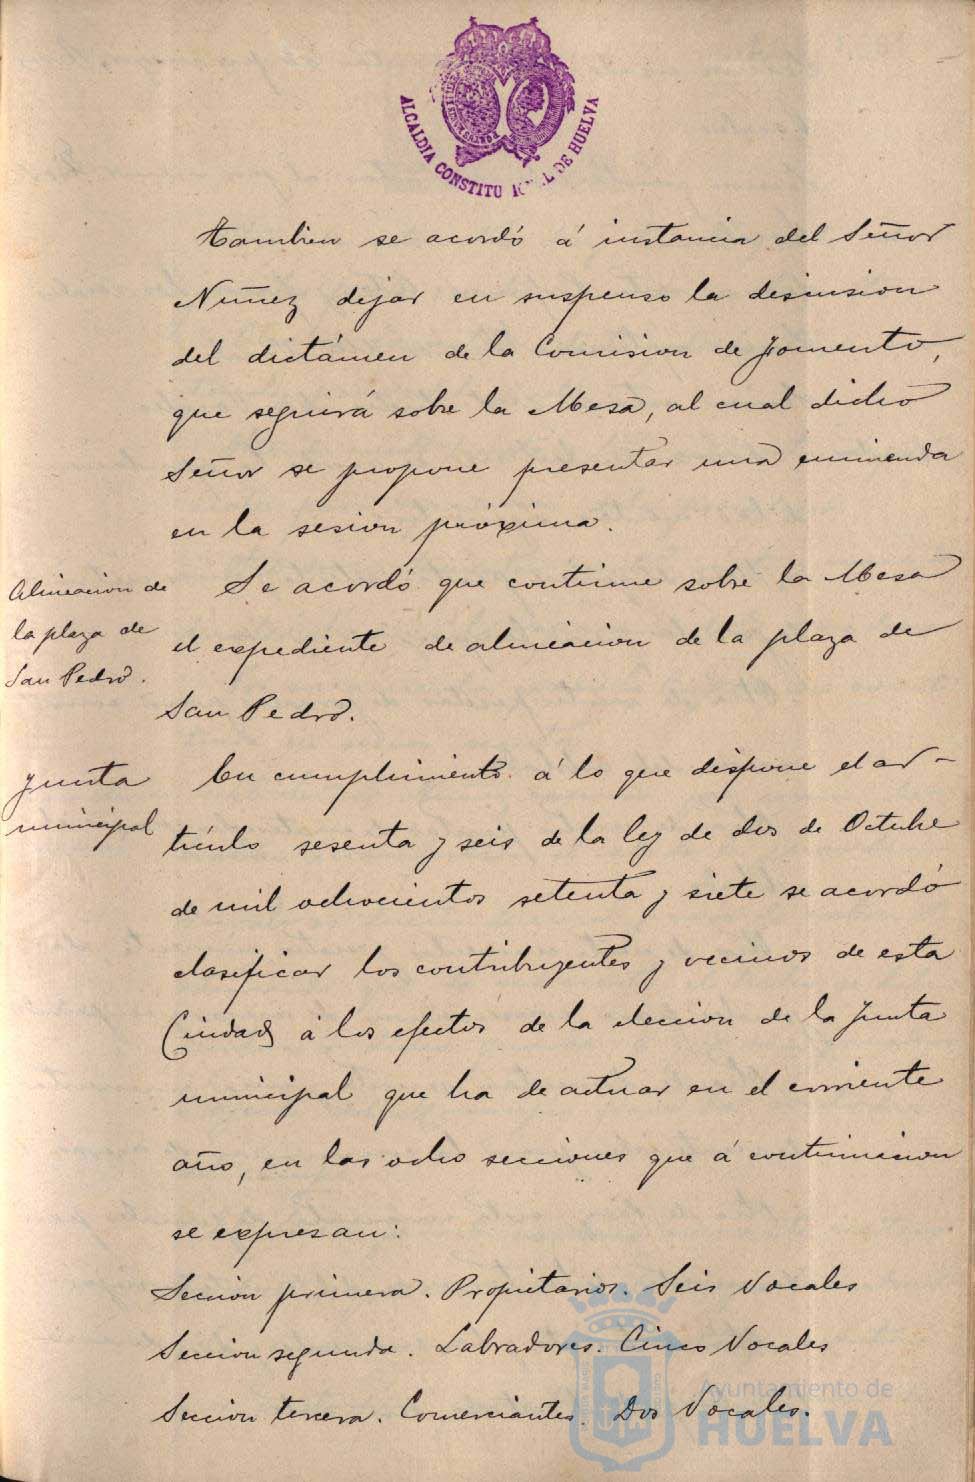 ALCALDIA CONSTITU N L DE HUELVA
tambien se acordó á instancia del Señor
Nuñez dejar en suspenso la discusion
del dictámen de la Comision de Fomento,
que seguirá sobre la Mesa, al cual dicho
Señor se propone presentar una enmienda
en la sesion próxima.
Alineacion de
la plaza de
San Pedro.
Se acordó que continue sobre la Mesa
el expediente de alineacion de la plaza de
San Pedro.
Junta
municipal
En cumplimiento á lo que dispone el ar-
tículo sesenta y seis de la ley de dos de Octubre
de mil ochocientos setenta y siete se acordó
clasificar los contribuyentes y vecinos de esta
Ciudad á los efectos de la eleccion de la Junta
municipal que ha de actuar en el corriente
año, en las ocho secciones que á continuacion
se expresan:
Seccion primera. Propietarios. Seis Vocales
Seccion segunda. Labradores. Cinco Vocales
Seccion tercera. Comerciantes. Dos Vocales.
Ayuntamiento de
HUELVA